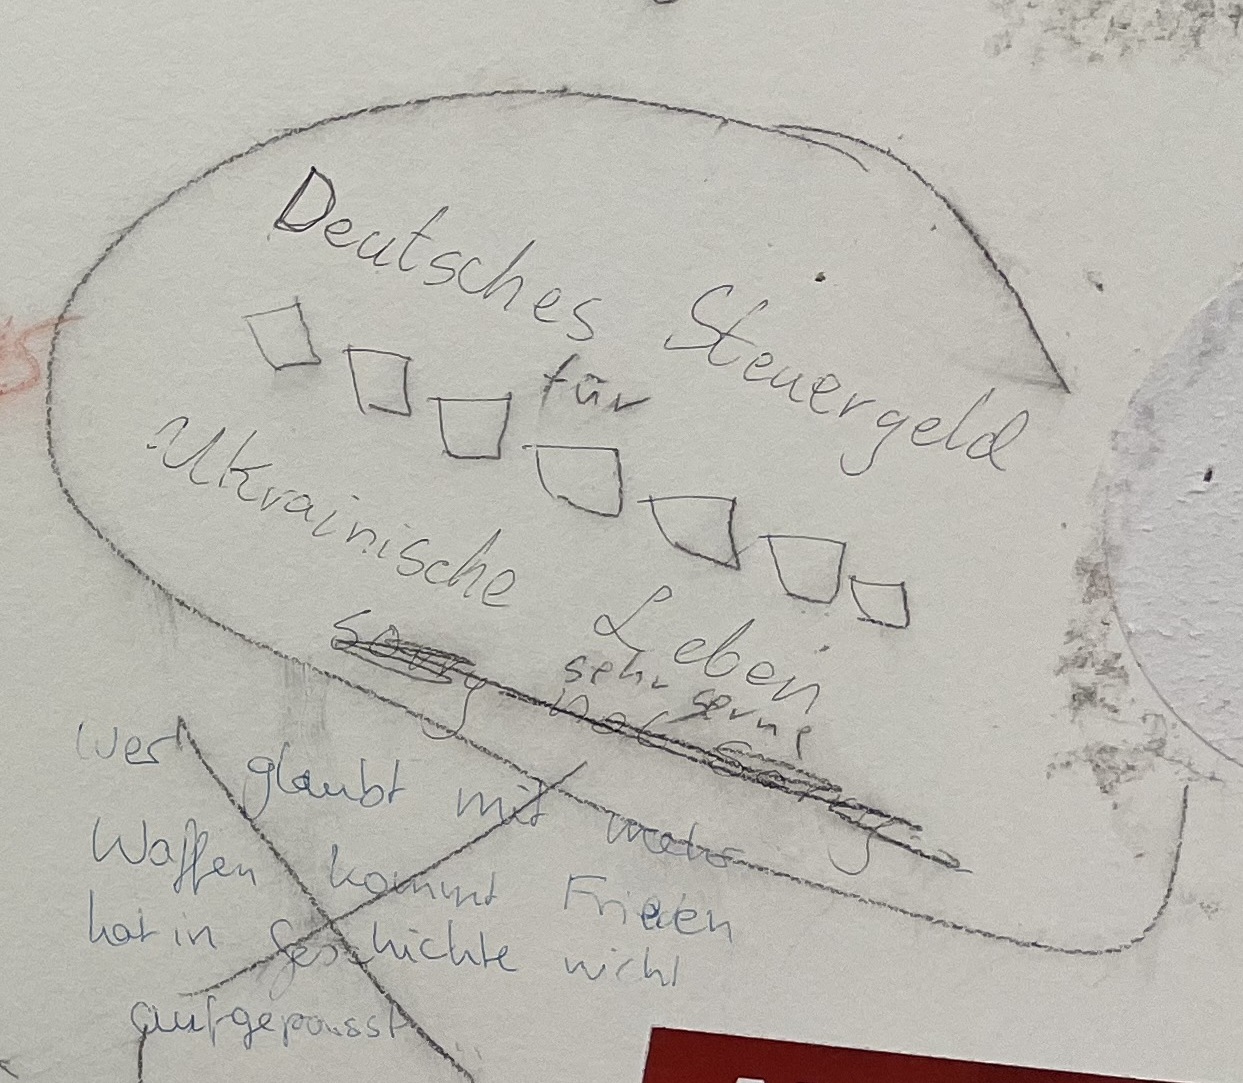 Deutsches Steuergeld
für
Ukrainische Leben
sorry not sorry
sehr gerne!
Wer glaubt mit mehr
Waffen kommt Frieden
hat in Geschichte nicht
aufgepasst